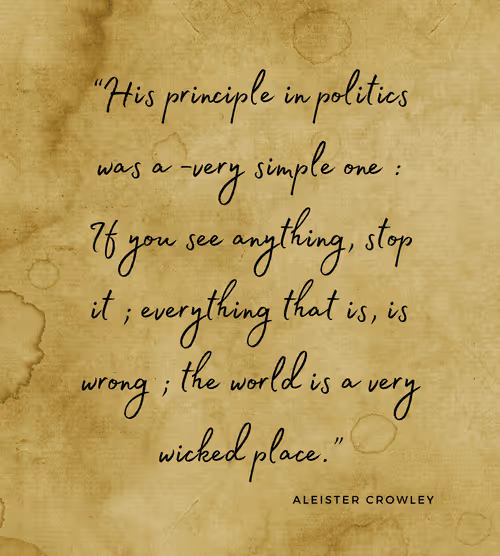 “His principle in politics
was a -very simple one :
If you see anything, stop
it ; everything that is, is
wrong ; the world is a very
wicked place.”
ALEISTER CROWLEY